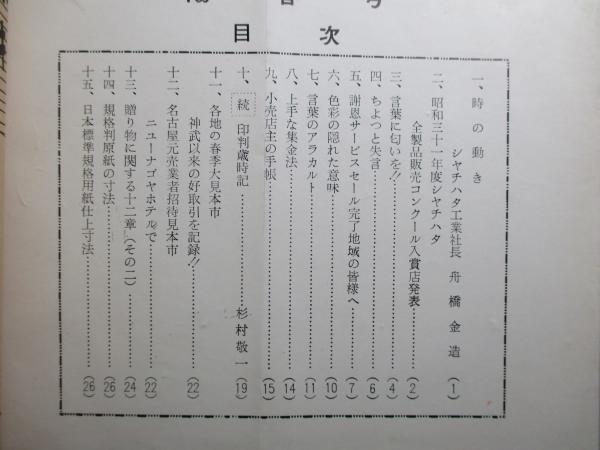 目次
一、時の動き
シヤチハタ工業社長 舟橋金造 (1)
二、昭和三十一年度シヤチハタ
全製品販売コンクール入賞店発表 (2)
三、言葉に匂いを!! (4)
四、ちよつと失言 (6)
五、謝恩サービスセール完了地域の皆様へ (7)
六、色彩の隠れた意味 (10)
七、言葉のアラカルト (11)
八、上手な集金法 (14)
九、小売店主の手帳 (15)
十、続 印判歳時記 杉村敬一 (19)
十一、各地の春季大見本市
神武以来の好取引を記録!! (22)
十二、名古屋元売業者招待見本市
ニユーナゴヤホテルで (22)
十三、贈り物に関する十二章(その二) (24)
十四、規格判原紙の寸法 (26)
十五、日本標準規格用紙仕上寸法 (26)